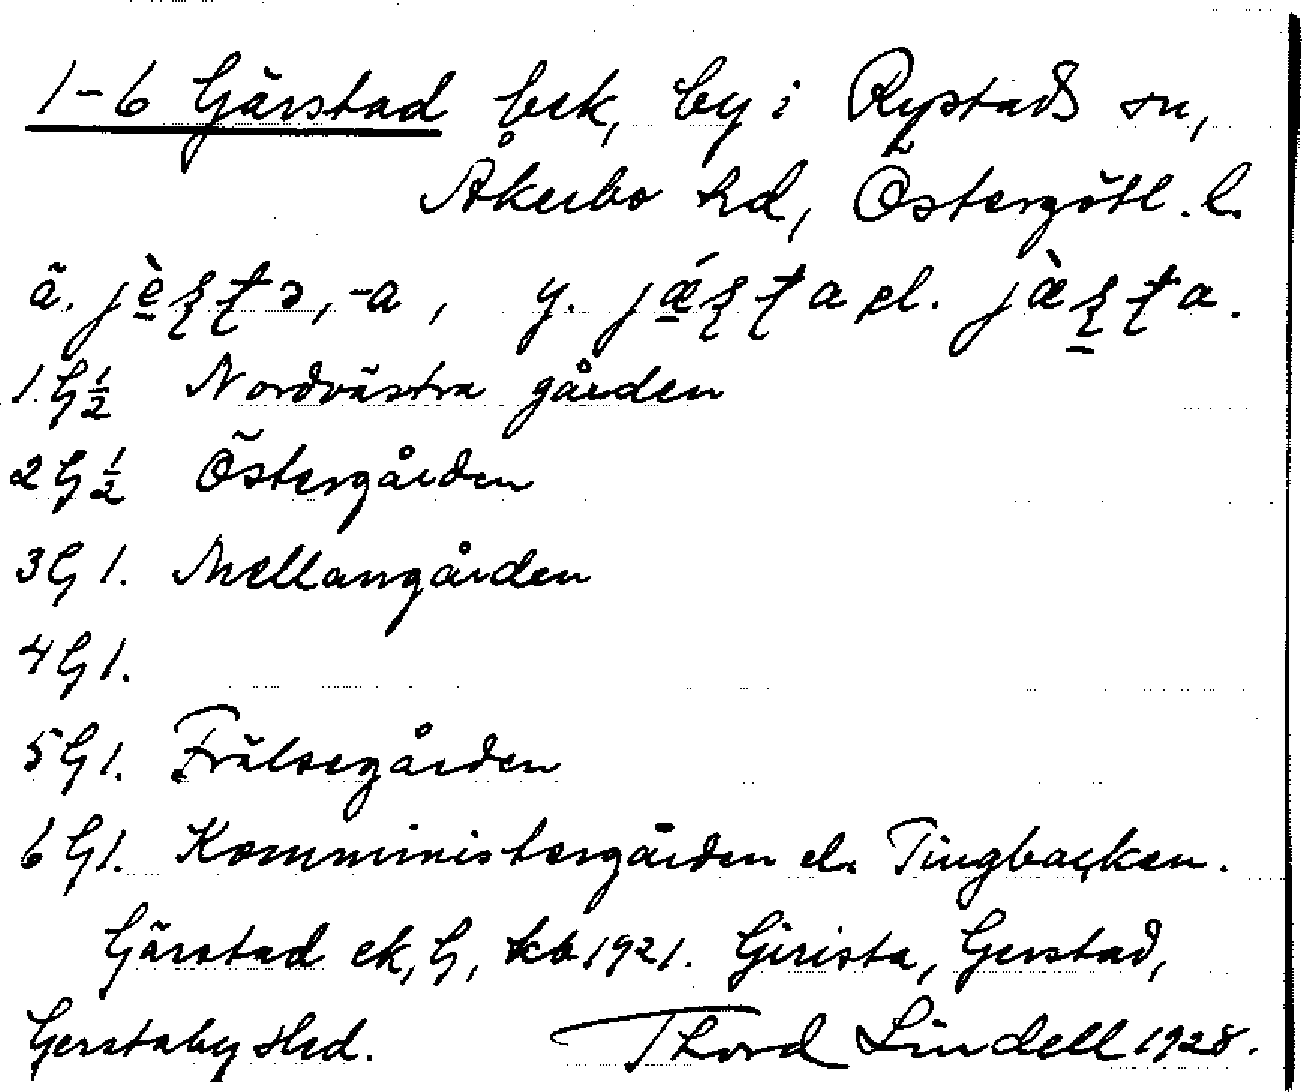 1-6 Gärstad bek, by i Rystads sn,
Åkerbo hd, Östergötl. l.
ä. jè̠ʂʈə, -a, y. jǽ̠ʂʈa el. jæ̀ʂ̠ʈa.
1. G ½ Nordvästra gården
2 G ½ Östergården
3 G 1. Mellangården
4 G 1.
5 G 1. Frälsegården
6 G 1. Komministergården el. Tingbacken.
Gärstad ek, G, kb 1921. Girista, Gerstad,
Gerstaby Hed. Thord Lindell 1928.